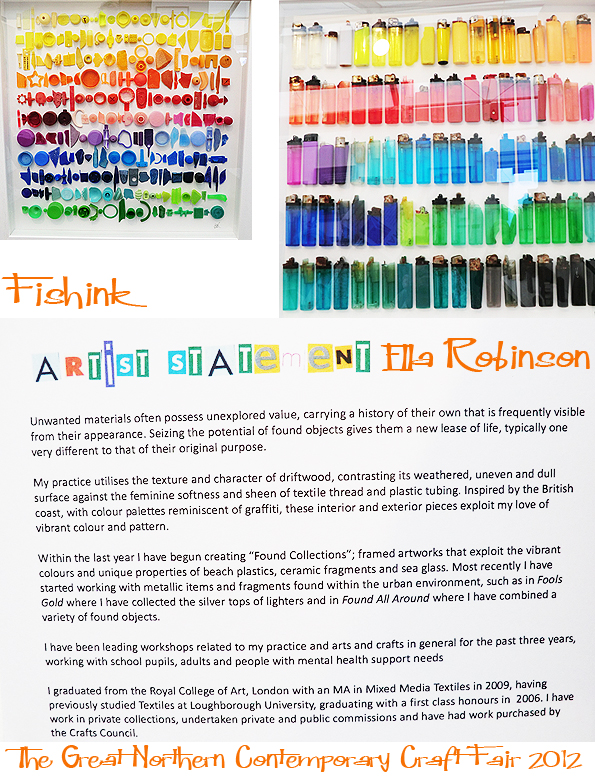 Fishink
ARTIST STATEMENT Ella Robinson
Unwanted materials often possess unexplored value, carrying a history of their own that is frequently visible
from their appearance. Seizing the potential of found objects gives them a new lease of life, typically one
very different to that of their original purpose.
My practice utilises the texture and character of driftwood, contrasting its weathered, uneven and dull
surface against the feminine softness and sheen of textile thread and plastic tubing. Inspired by the British
coast, with colour palettes reminiscent of graffiti, these interior and exterior pieces exploit my love of
vibrant colour and pattern.
Within the last year I have begun creating "Found Collections"; framed artworks that exploit the vibrant
colours and unique properties of beach plastics, ceramic fragments and sea glass. Most recently I have
started working with metallic items and fragments found within the urban environment, such as in Fools
Gold where I have collected the silver tops of lighters and in Found All Around where I have combined a
variety of found objects.
I have been leading workshops related to my practice and arts and crafts in general for the past three years,
working with school pupils, adults and people with mental health support needs
I graduated from the Royal College of Art, London with an MA in Mixed Media Textiles in 2009, having
previously studied Textiles at Loughborough University, graduating with a first class honours in 2006. I have
work in private collections, undertaken private and public commissions and have had work purchased by
the Crafts Council.
The Great Northern Contemporary Craft Fair 2012